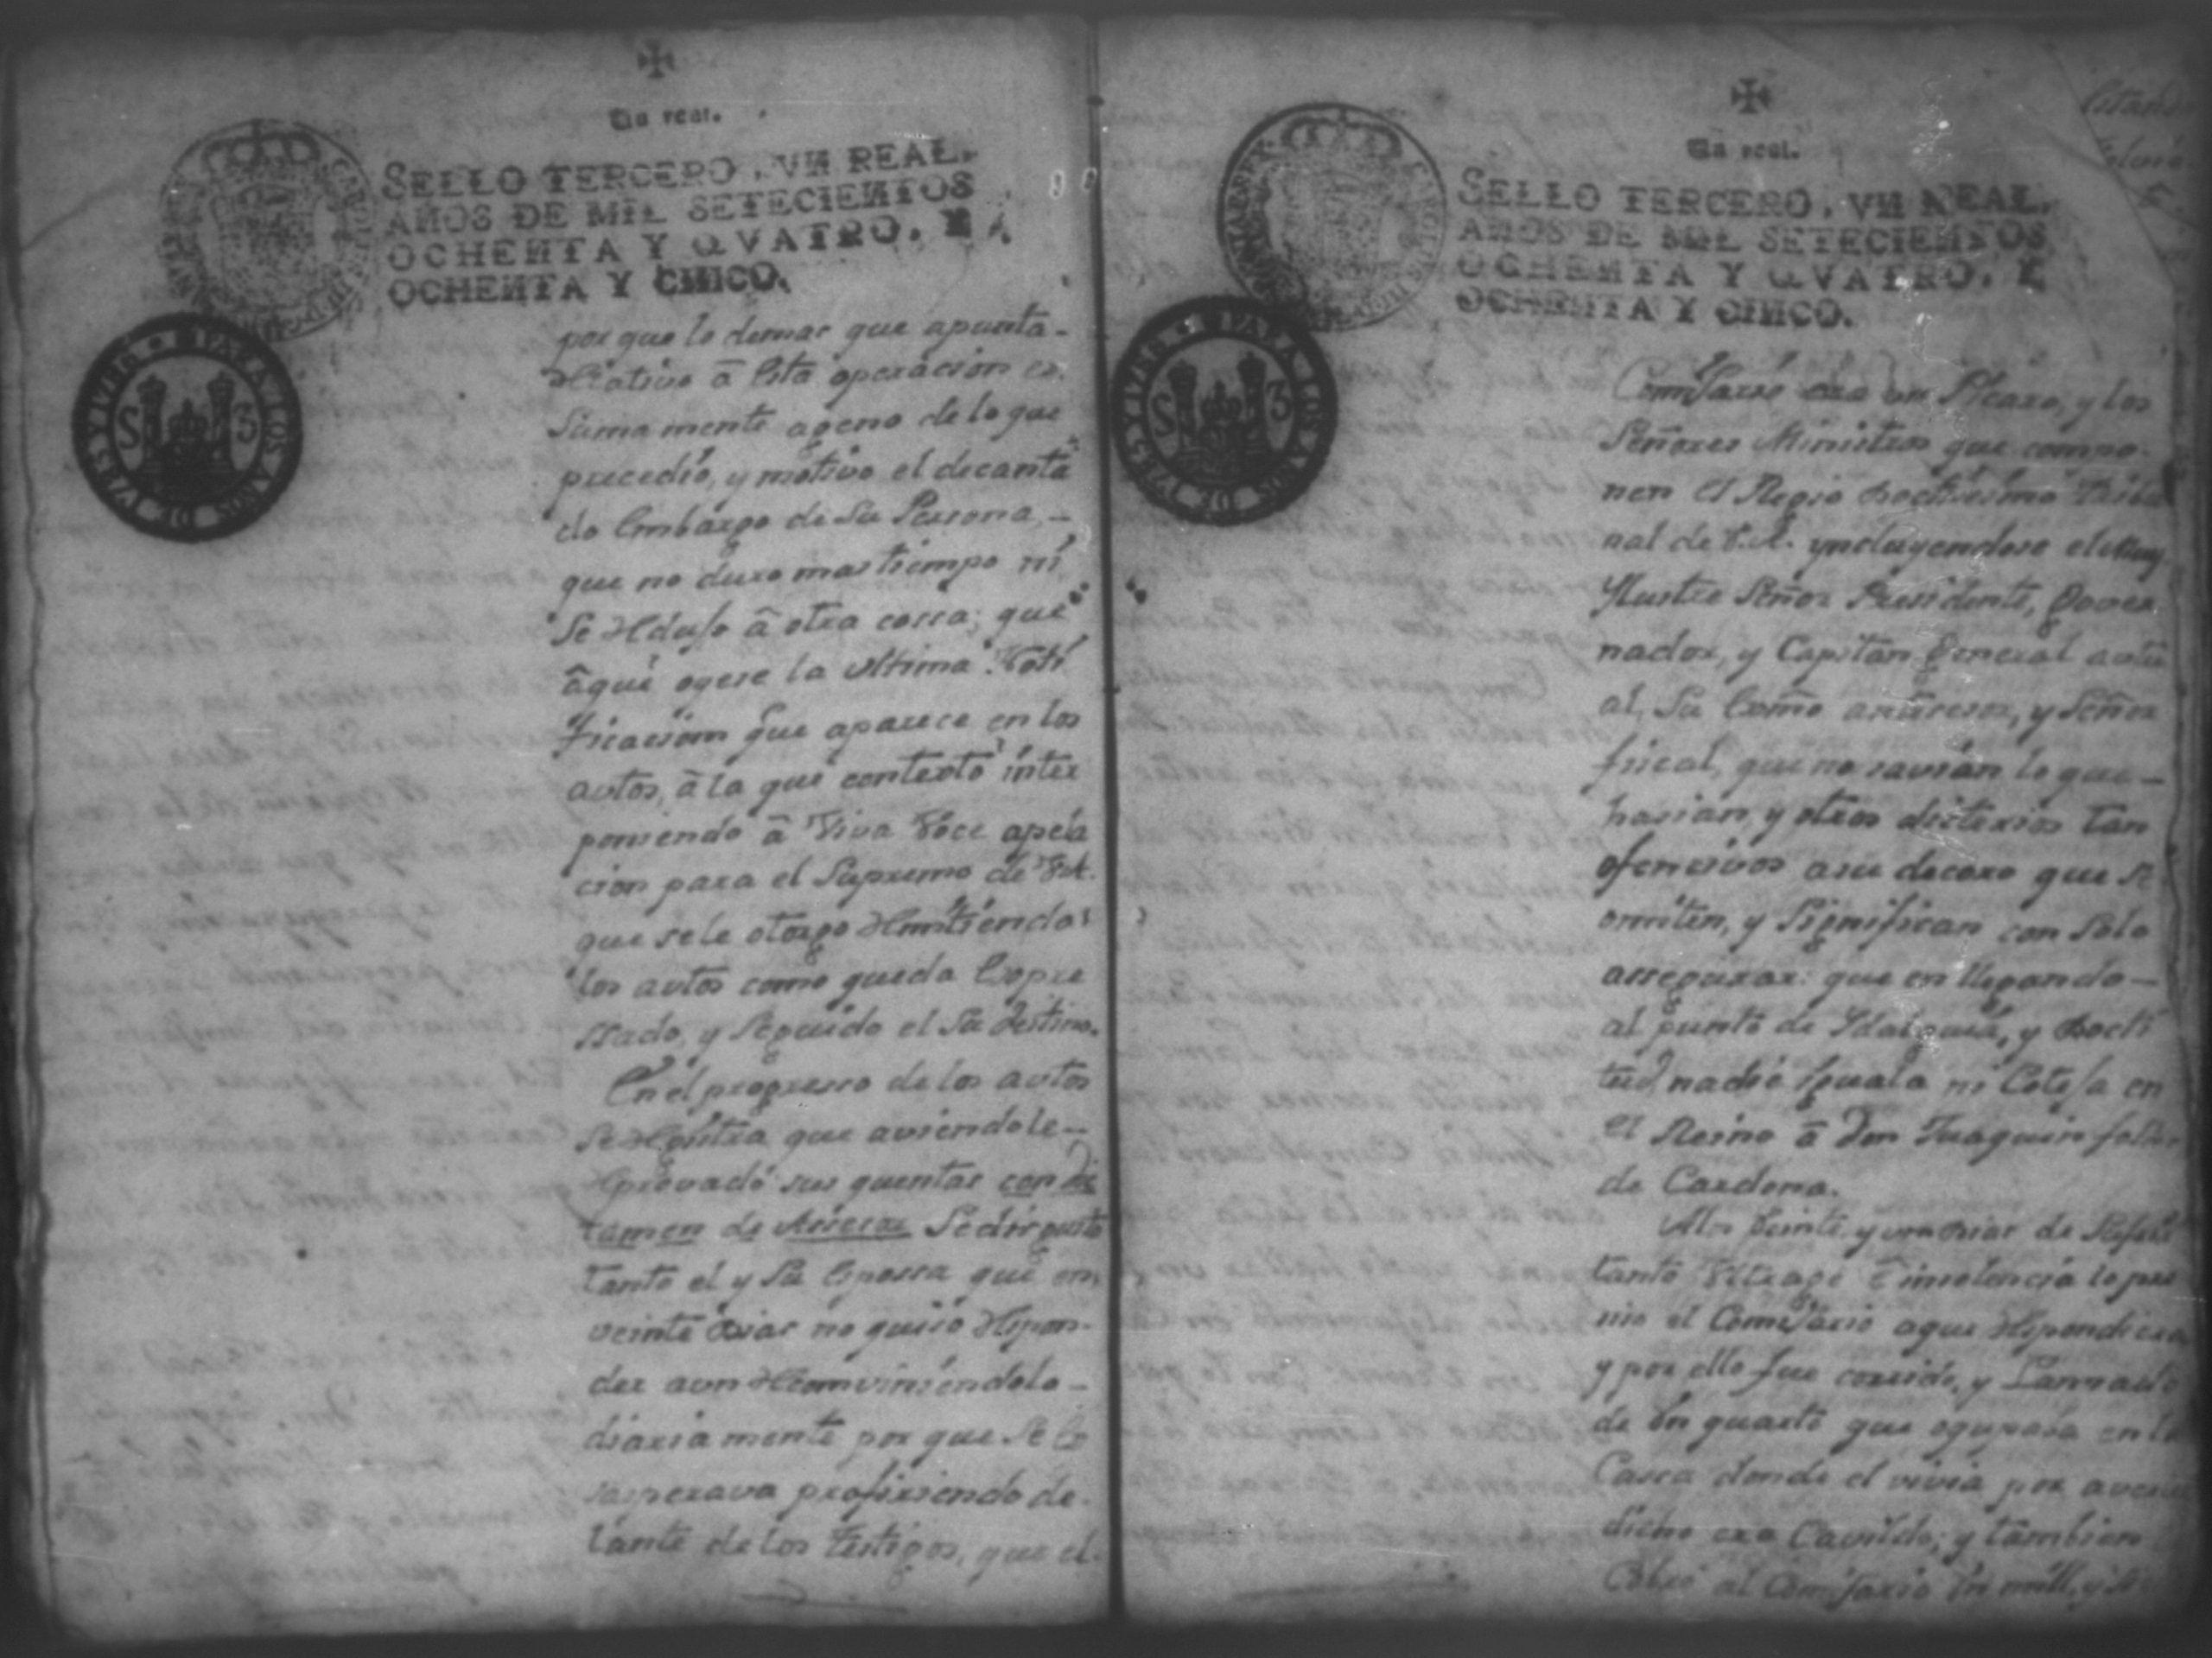 Un real.
SELLO TERCERO, VN REAL,
AÑOS DE MIL SETECIENTOS
OCHENTA Y QVATRO, Y
OCHENTA Y CINCO.
PARA LOS AÑOS DE 1785 Y 1786
S 3
por que lo demas que apunta-
Relativo â esta operacion es
Suma mente ageno de lo que
precedio, y motivo el decanta
do Embargo de Su Persona,-
que no duro mas tiempo ni
Se Redujo â otra cossa; que
âqui ogere la ultima Noti
ficacion que aparece en los
autos, â la que contexto inter
poniendo â Viva Voce apela
cion para el Supremo de V.A.
que se le otorgo Remitiendo
los autos como queda Expre
ssado, y Seguido el Su destino.
En el progresso de los autos
Se Registra que aviendole-
Reprovado sus quentas con dic
tamen de Asesor Se disgusto
tanto el y Su Esposa que en
veinte dias no quiso Respon-
der aun Reconviniendolo-
diaria mente por que Se Ex
asperava profiriendo de-
lante de los testigos, que el-
Un real.
SELLO TERCERO, VN REAL,
AÑOS DE MIL SETECIENTOS
OCHENTA Y QVATRO, Y
OCHENTA Y CINCO.
PARA LOS AÑOS DE 1785 Y 1786
S 3
Comisario era un Picaro, y los
Señores Ministros que compo-
nen el Regio Rectissimo Tribu
nal de V.A. yncluyendose el Muy
Ylustre Señor Presidente, Gover
nador, y Capitan General actu
al, Su Exmo antecesor, y Señor
fiscal, que no savian lo que-
hasian, y otros dicterios tan
ofensivos a su decoro que se
omiten, y Significan con Solo
assegurar: que en llegando-
al punto de Ydalguia, y Recti
tud, nadie Yguala ni Coteja en
el Reino â Don Juaquin
de Cardona.
A los Veinte y un dias de
tanto Ultrage ê insolencia lo pre
mio el Comisario a que Respondiera
y por ello fue corrido, y Lansado
de Un quarto que ogupava en la
Cassa donde el vivia por aver
dicho era Cavildo; y tambien
Cobró al Comisario Un mill, y